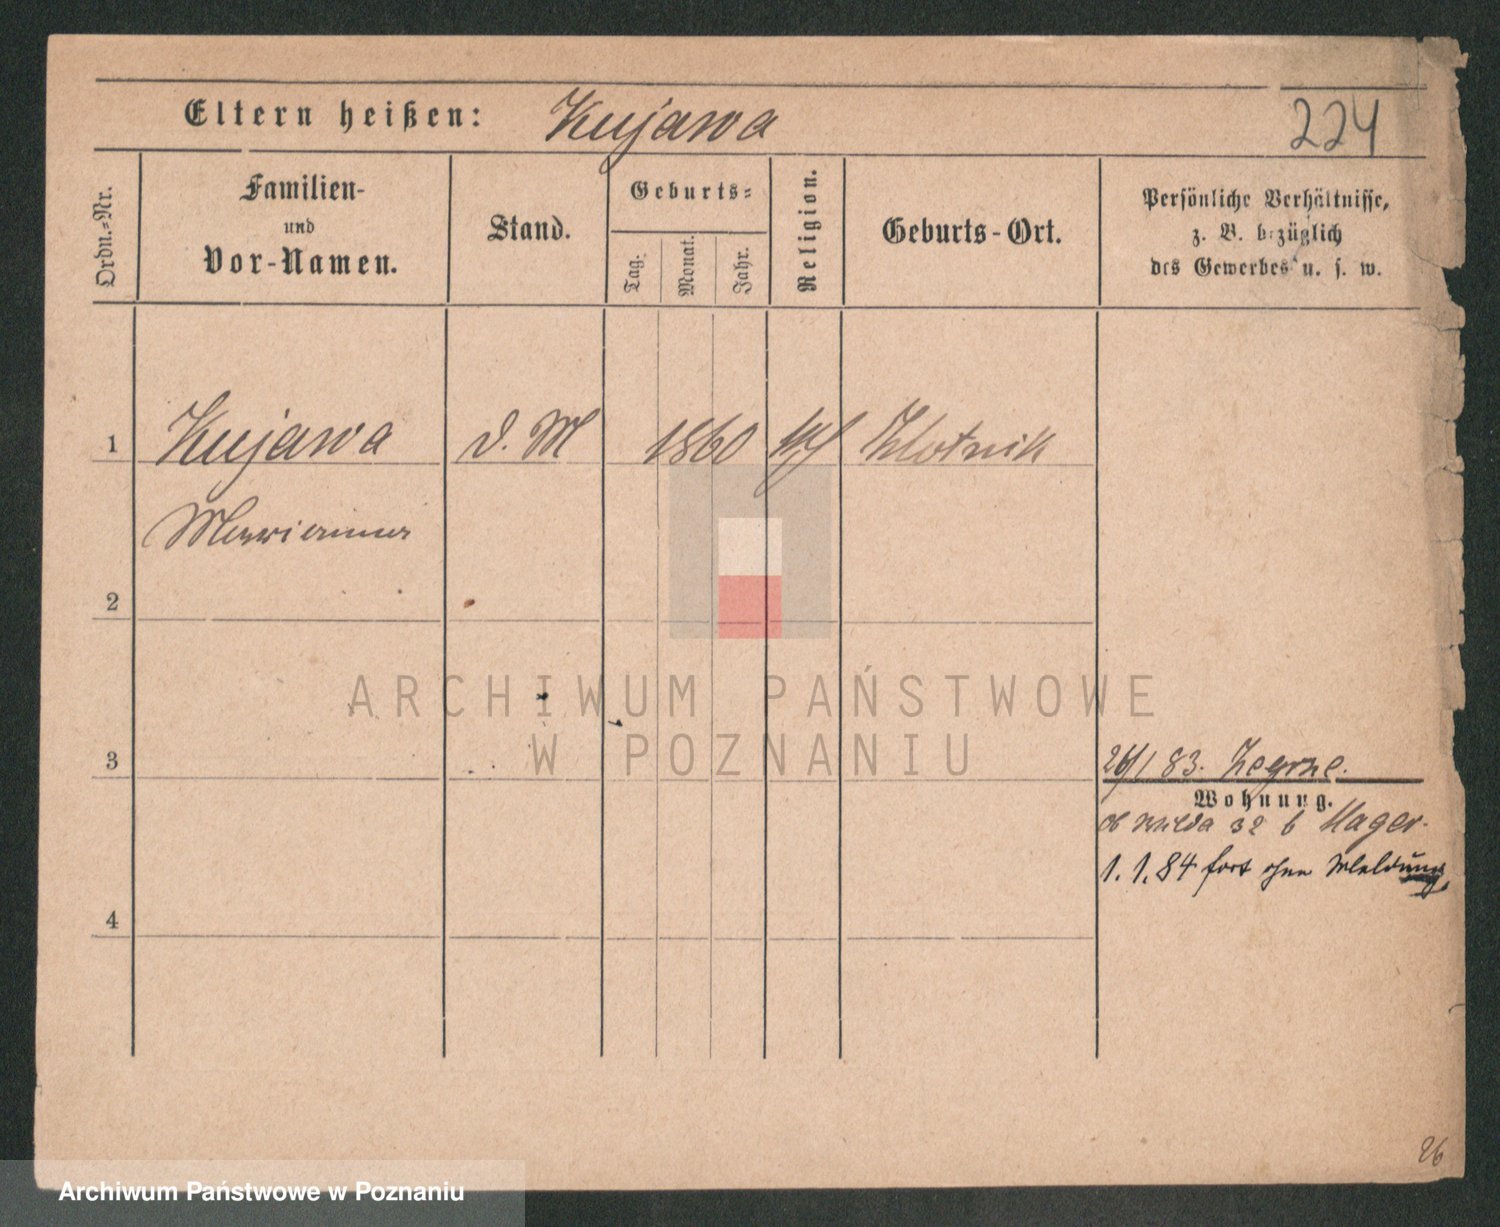 Eltern heißen: Kujawa
224
Ordn.-Nr.
Familien-
und
Vor-Namen.
Stand.
Geburts-
Tag.
Monat.
Jahr.
Religion.
Geburts-Ort.
Persönliche Verhältnisse,
z. B. bezüglich
des Gewerbes u. s. w.
1 Kujawa d. M 1860 kth Zlotnik
Marianna
2
3
4
26/1 83. Zegrze.
Wohnung.
ob wilda 32 b Hager.
1. 1. 84 fort ohne Meldung
26
ARCHIWUM PAŃSTWOWE
W POZNANIU
Archiwum Państwowe w Poznaniu